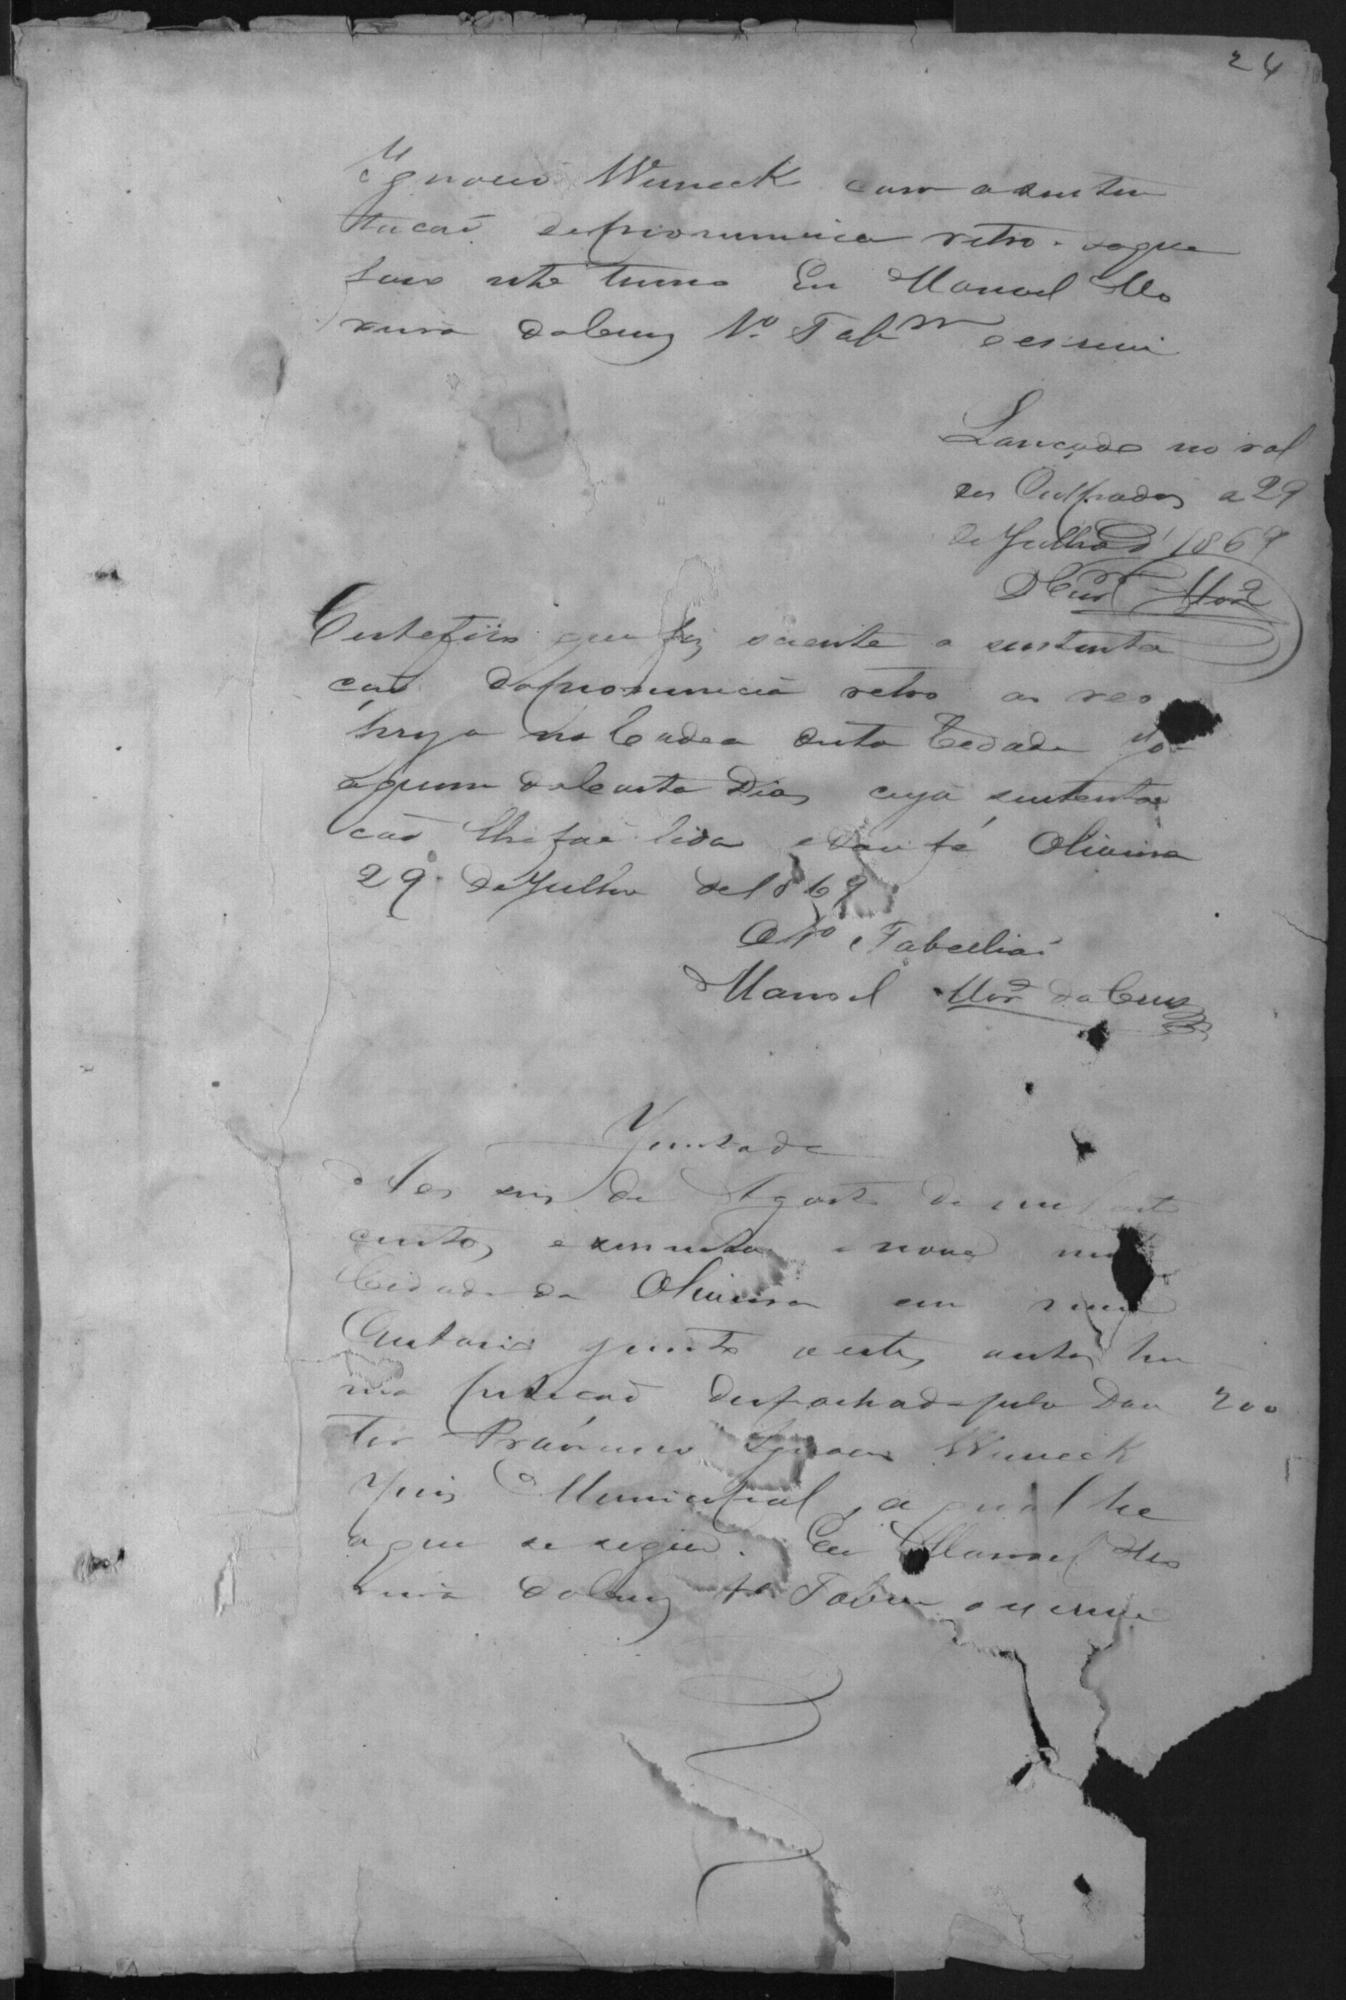 24
Ignacio Werneck com a susten
tacaõ depronuncia retro. doque
faço este termo Eu Manoel Mo
reira daCruz 1º Tabam o escrevi
Lançado no rol
dos Culpados a 29
de Julho d' 1869
DCruz Morª
Certefico que fiz sciente a sustenta
caõ dapronuncia retro ao reo
na Cadea desta Cidade Jo
aquim deCarta Dias cuja sustenta
caõ lhe foi lida e dou fé Oliveira
29 de Julho de 1869
O 1º Tabelliaõ
Manoel Morª da Cruz
Juntada
Aos seis de Agosto de mil oito
centos, e sessenta e nove nesta
Cidade da Oliveira em meu
Cartorio junto a estes autos hu
ma peticaõ despachada pelo Dou 200
tor Francisco Ignacio Werneck
Juis Municipal, a qual he
a que se segue. Eu Manoel Mo
reira daCruz 1º Tabam o escrevi